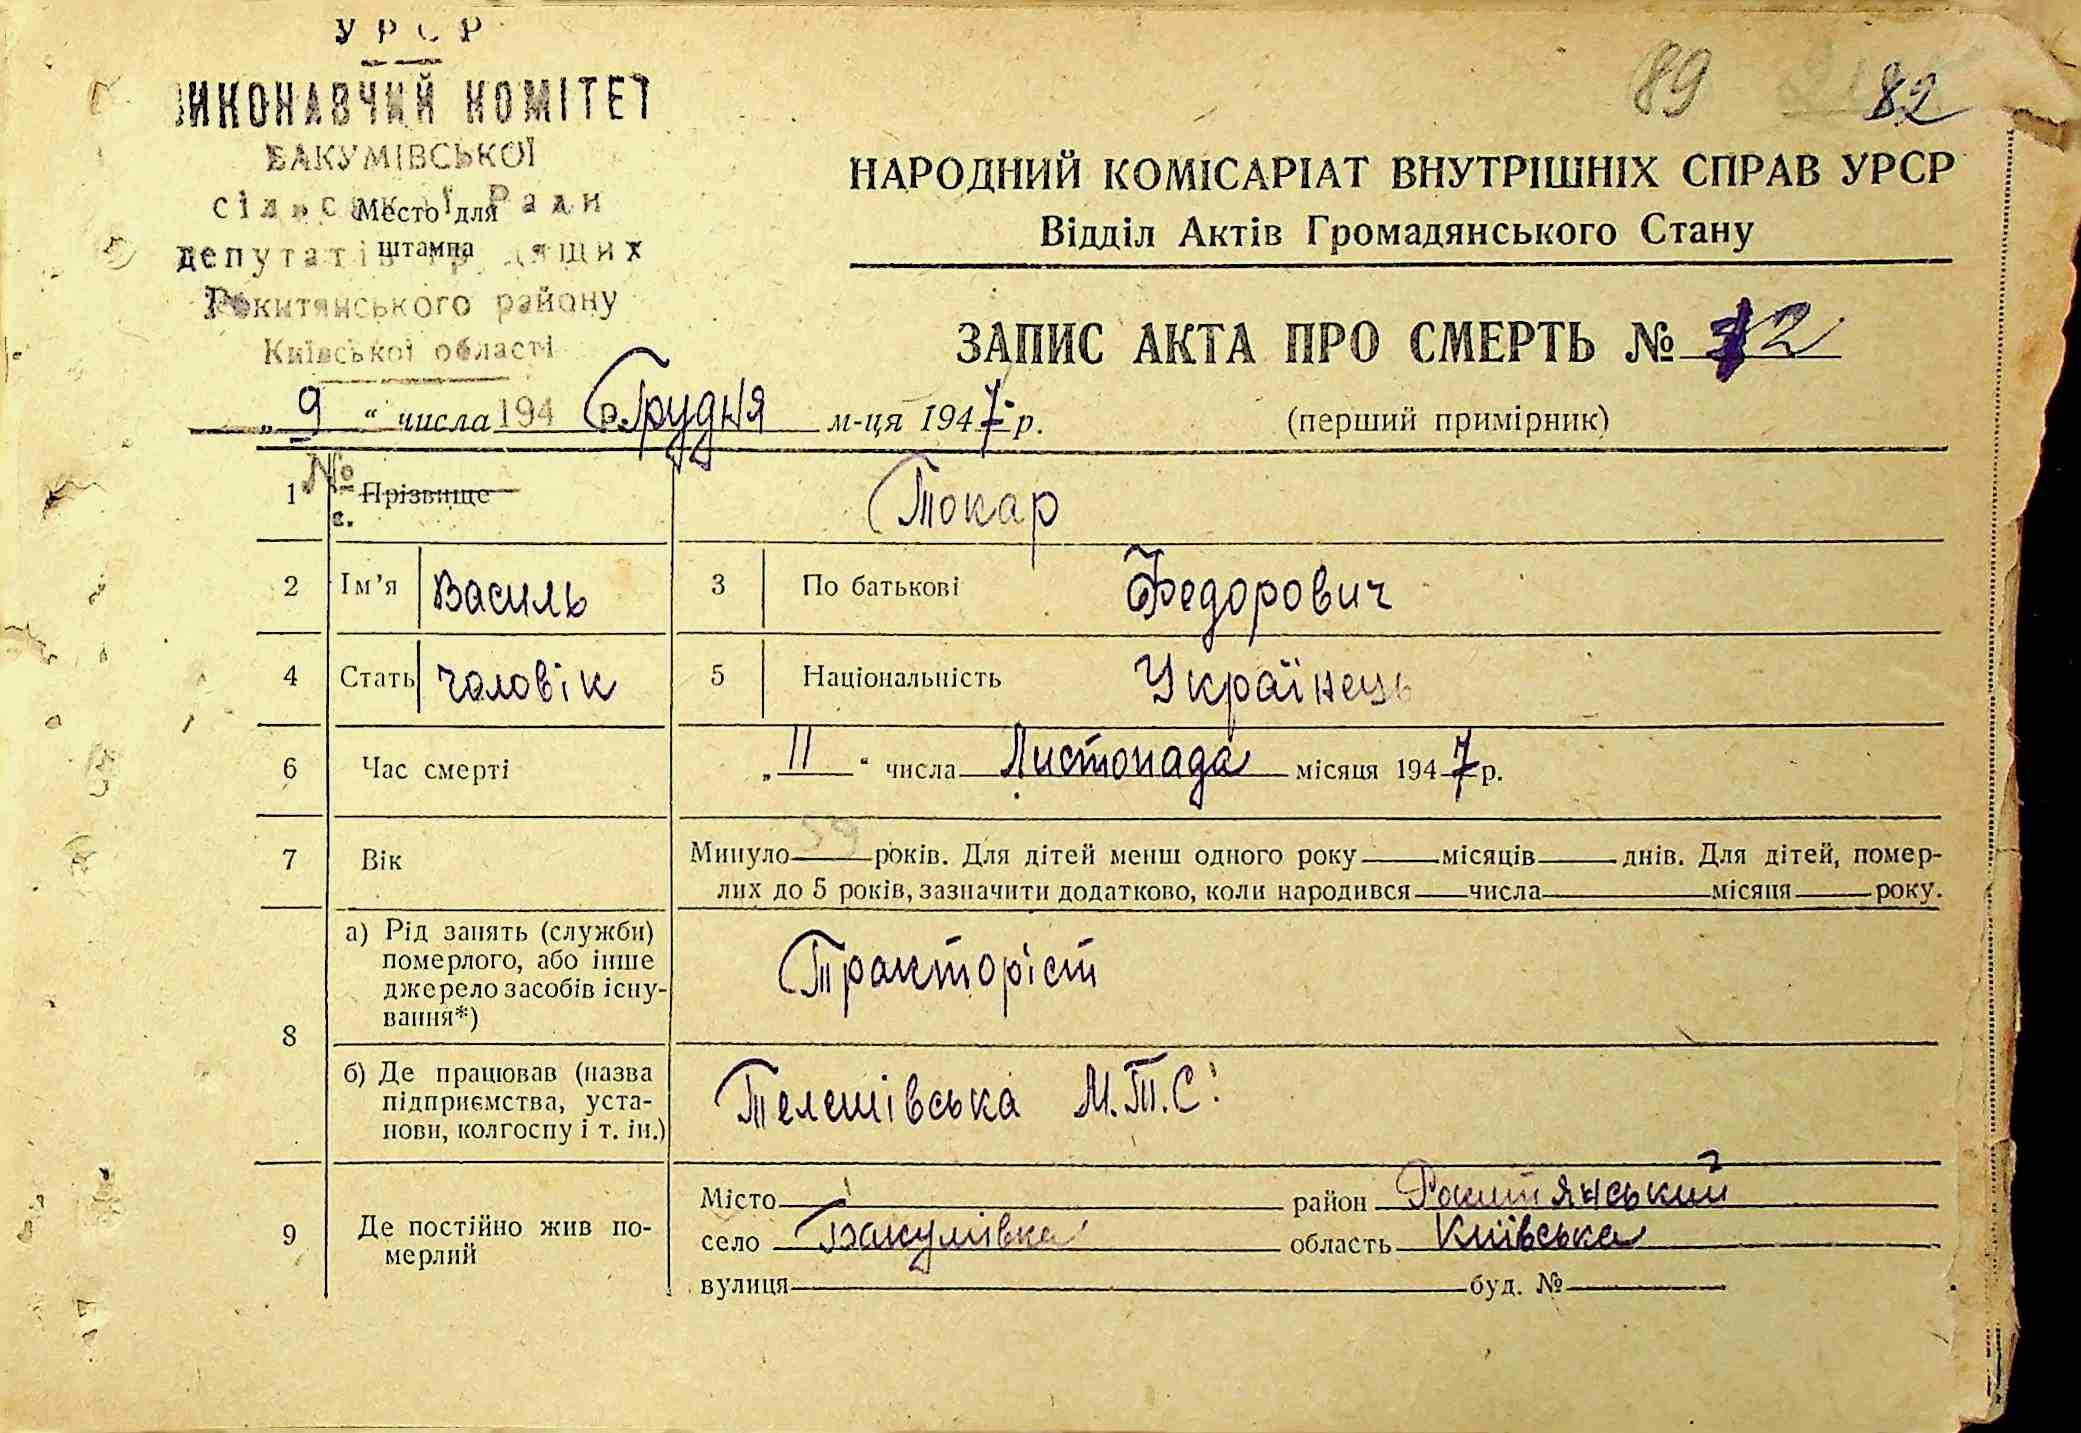 УРСР
ВИКОНАВЧИЙ КОМІТЕТ
БАКУМІВСЬКОЇ
сільської Ради
депутатів трудящих
Рокитянського району
Київської області
Место для
штампа
89 82
НАРОДНИЙ КОМІСАРІАТ ВНУТРІШНІХ СПРАВ УРСР
Відділ Актів Громадянського Стану
ЗАПИС АКТА ПРО СМЕРТЬ № 12
(перший примірник)
„ 9 “ числа 194 р. Грудня м-ця 1947 р.
№
1 Прізвище Токар
с.
2 Ім’я Василь 3 По батькові Федорович
4 Стать чоловік 5 Національність Українець
6 Час смерті „ 11 “ числа Листопада місяця 1947 р.
7 Вік Минуло 59 років. Для дітей менш одного року місяців днів. Для дітей, помер-
лих до 5 років, зазначити додатково, коли народився числа місяця року.
8 а) Рід занять (служби)
померлого, або інше
джерело засобів існу-
вання*)
Тракторіст
б) Де працював (назва
підприємства, уста-
нови, колгоспу і т. ін.)
Телешівська М.Т.С.
9 Де постійно жив по-
мерлий
Місто район Рокитянський
село Бакумівка область Київська
вулиця буд. №